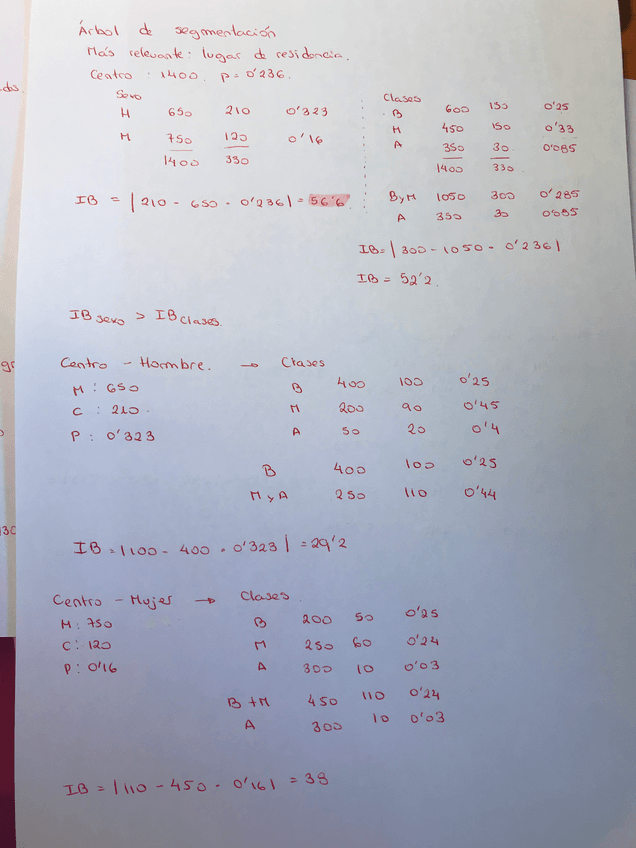 Árbol de segmentación
Más relevante: lugar de residencia.
Centro : 1400. p = 0'236.
Sexo
H 650 210 0'323
M 750 120 0'16
1400 330
IB = | 210 - 650 · 0'236 | = 56'6
Clases
B 600 150 0'25
M 450 150 0'33
A 350 30 0'085
1400 330
B y M 1050 300 0'285
A 350 30 0'085
IB = | 300 - 1050 · 0'236 |
IB = 52'2
IB sexo > IB clases.
Centro - Hombre. → Clases
M : 650
C : 210
P : 0'323
B 400 100 0'25
M 200 90 0'45
A 50 20 0'4
B 400 100 0'25
M y A 250 110 0'44
IB = | 100 - 400 · 0'323 | = 29'2
Centro - Mujer → Clases
M : 750
C : 120
P : 0'16
B 200 50 0'25
M 250 60 0'24
A 300 10 0'03
B + M 450 110 0'24
A 300 10 0'03
IB = | 110 - 450 · 0'16 | = 38